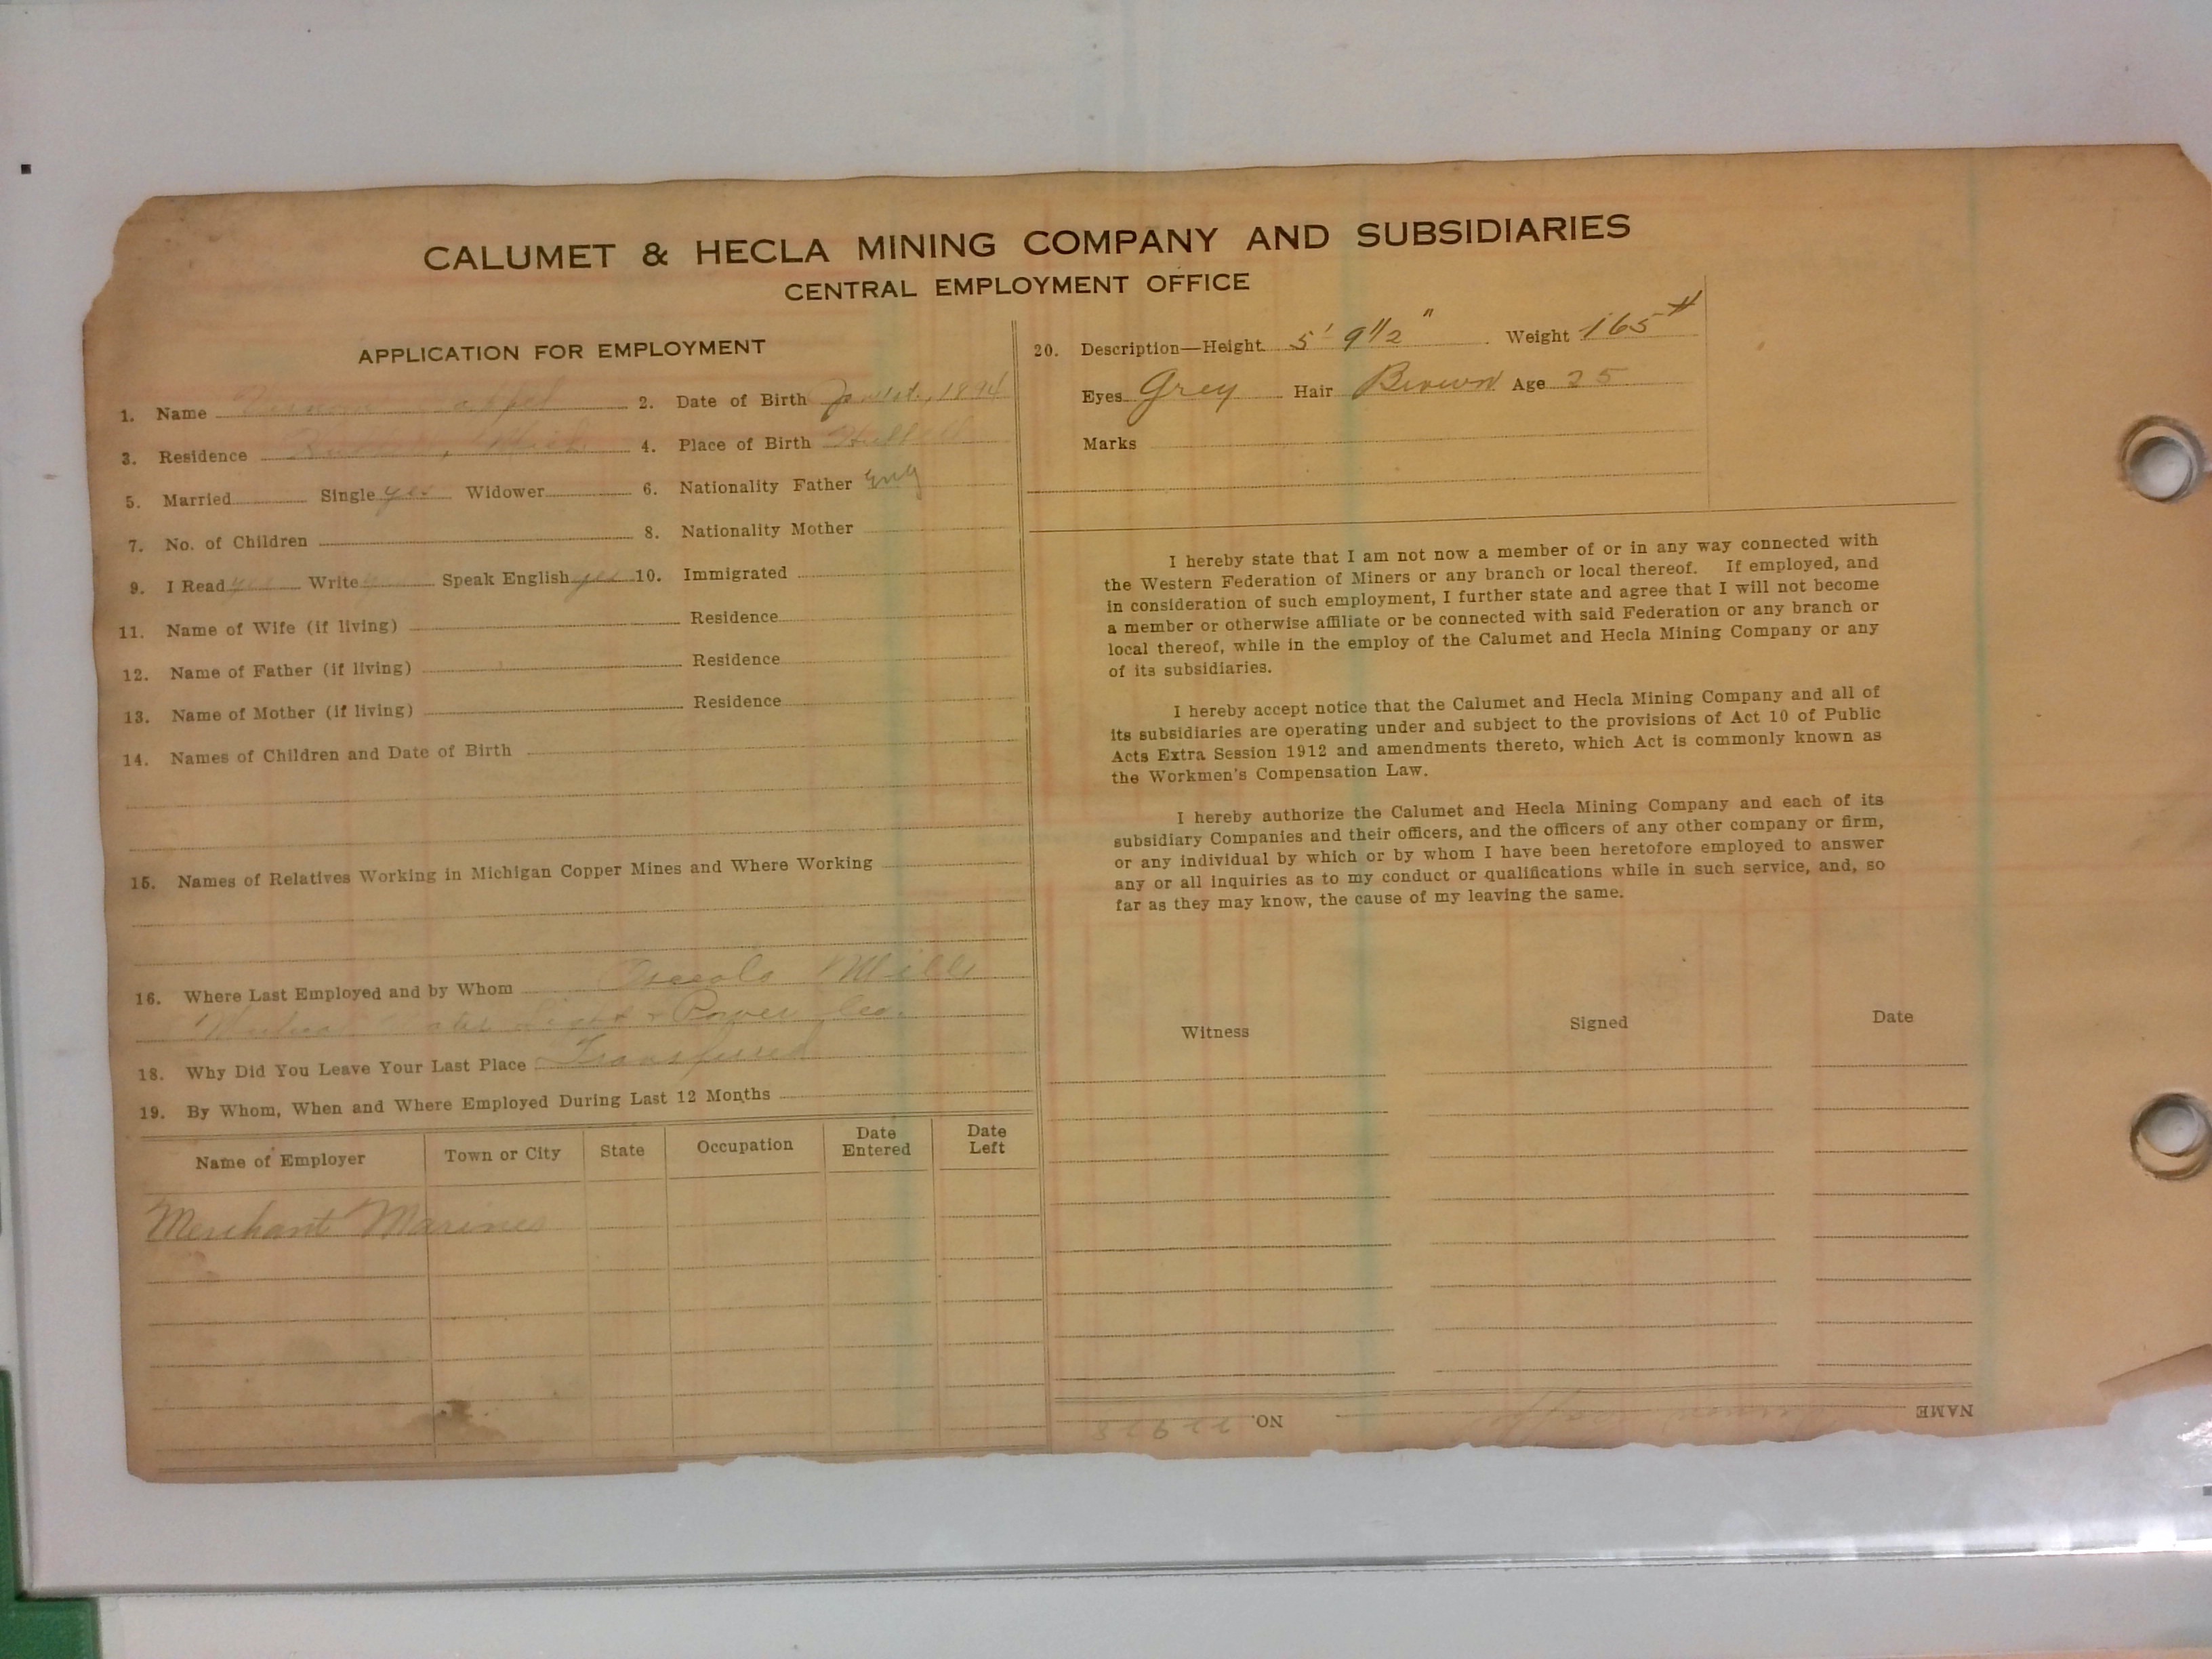 CALUMET & HECLA MINING COMPANY AND SUBSIDIARIES
CENTRAL EMPLOYMENT OFFICE
APPLICATION FOR EMPLOYMENT
1. Name 2. Date of Birth 1894
3. Residence Mich. 4. Place of Birth Hubbell
5. Married Single yes Widower 6. Nationality Father Eng
7. No. of Children 8. Nationality Mother
9. I Read yes Write Speak English yes 10. Immigrated
11. Name of Wife (if living) Residence
12. Name of Father (if living) Residence
13. Name of Mother (if living) Residence
14. Names of Children and Date of Birth
15. Names of Relatives Working in Michigan Copper Mines and Where Working
16. Where Last Employed and by Whom Osceola Mills
Light & Power Co.
18. Why Did You Leave Your Last Place Transferred
19. By Whom, When and Where Employed During Last 12 Months
Name of Employer Town or City State Occupation Date Entered Date Left
Merchant Marines
20. Description—Height 5' 9 1/2" Weight 165#
Eyes Grey Hair Brown Age 25
Marks
I hereby state that I am not now a member of or in any way connected with
the Western Federation of Miners or any branch or local thereof. If employed, and
in consideration of such employment, I further state and agree that I will not become
a member or otherwise affiliate or be connected with said Federation or any branch or
local thereof, while in the employ of the Calumet and Hecla Mining Company or any
of its subsidiaries.
I hereby accept notice that the Calumet and Hecla Mining Company and all of
its subsidiaries are operating under and subject to the provisions of Act 10 of Public
Acts Extra Session 1912 and amendments thereto, which Act is commonly known as
the Workmen's Compensation Law.
I hereby authorize the Calumet and Hecla Mining Company and each of its
subsidiary Companies and their officers, and the officers of any other company or firm,
or any individual by which or by whom I have been heretofore employed to answer
any or all inquiries as to my conduct or qualifications while in such service, and, so
far as they may know, the cause of my leaving the same.
Witness Signed Date
NAME NO. 22928